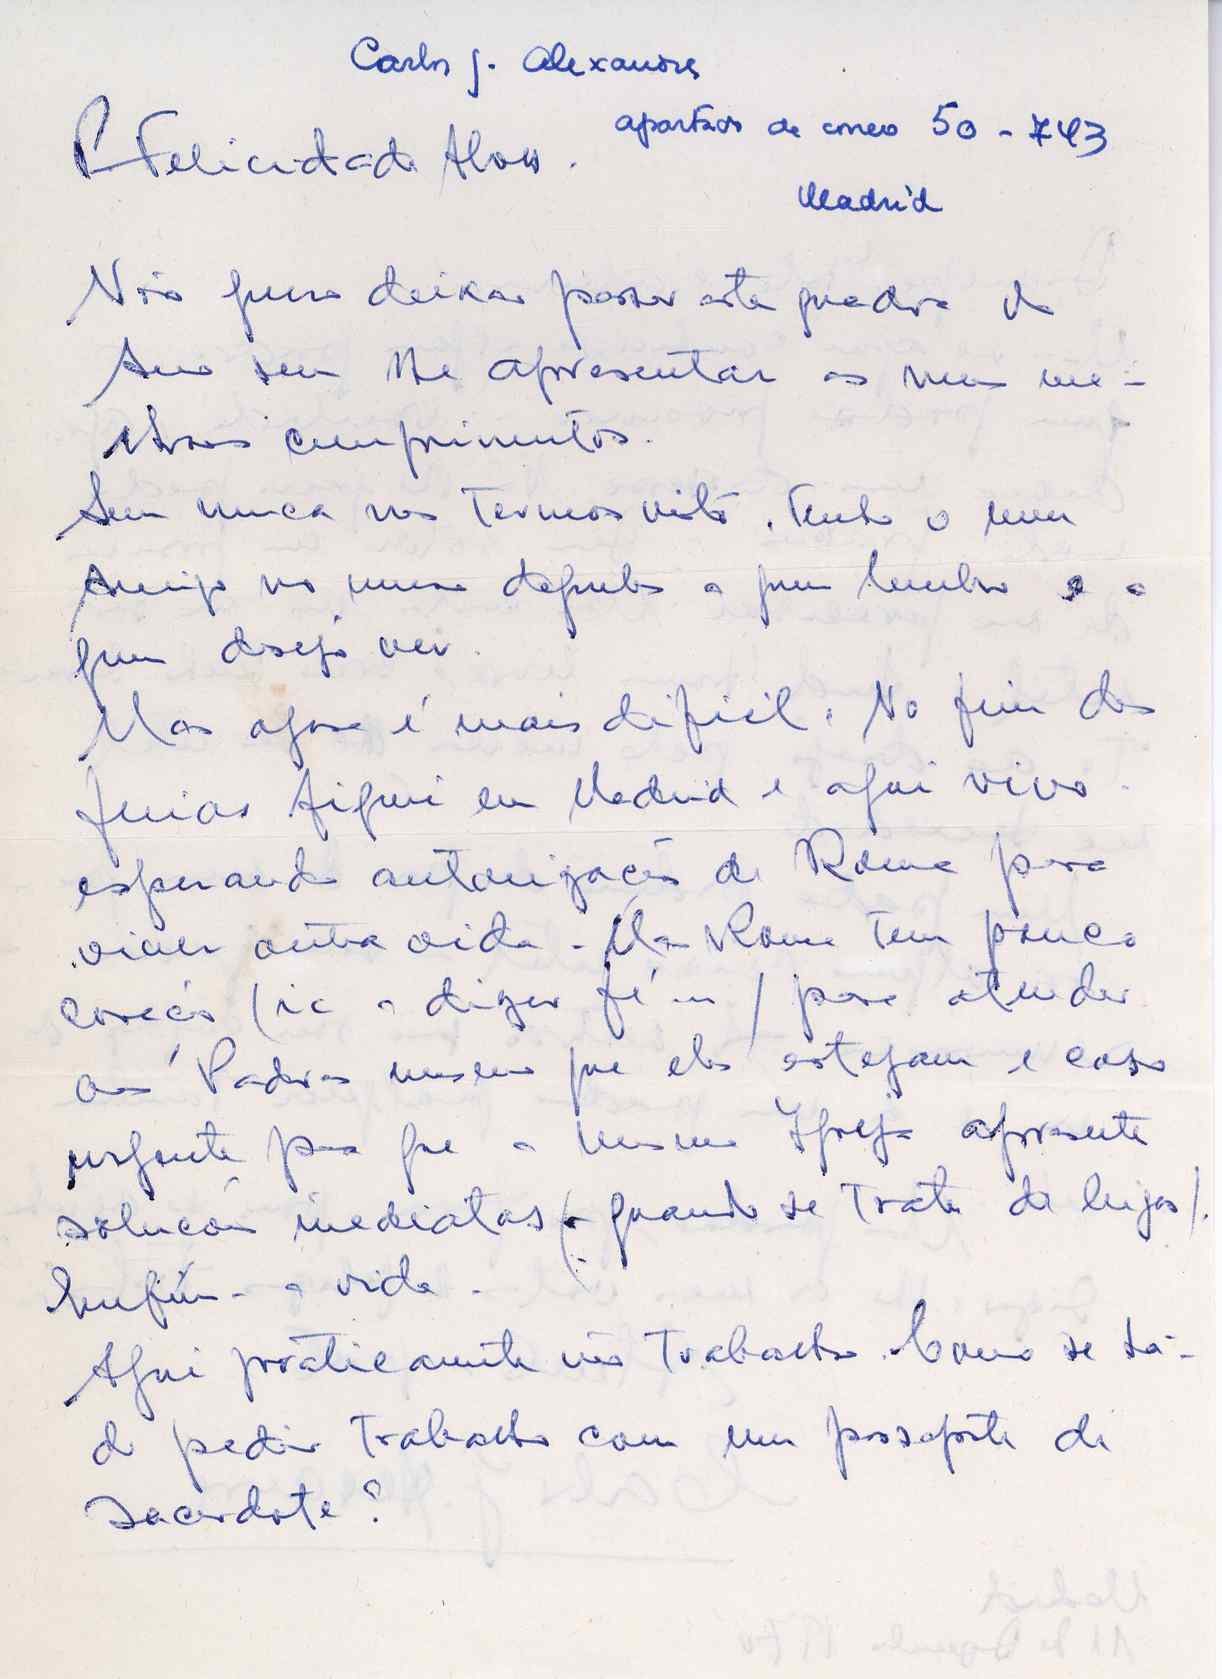 Carlos J. Alexandre
apartado de correo 50-743
Madrid
P. Felicidade Alves.
Não quero deixar passar esta quadra do
Ano sem lhe apresentar os meus me-
lhores cumprimentos.
Sem nunca nos termos visto, tenho o meu
Amigo no numero daqueles a quem lembro e a
quem desejo ver.
Mas agora é mais dificil. No fim das
ferias fiquei em Madrid e aqui vivo.
esperando autorização de Roma para
viver outra vida. Mas Roma tem pouco
coração (ia a dizer fé) para atender
aos Padres mesmo que eles estejam e caso
urgente para que a mesma Igreja apresente
solucões imediatas (quando se trata de leigos).
Enfim - a vida.
Aqui práticamente não trabalho. Como se há-
de pedir trabalho com um passaporte de
sacerdote?